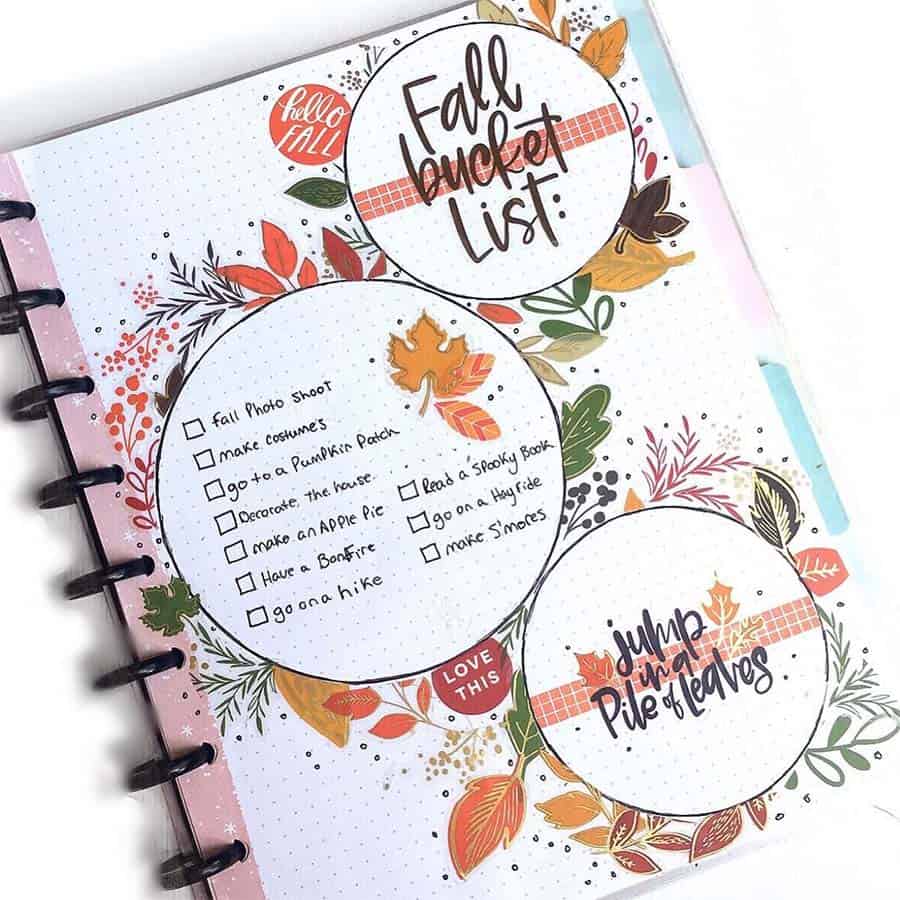 hello
FALL
Fall
bucket
List:
fall Photo Shoot
make costumes
go to a Pumpkin Patch
Decorate, the house.
make an APPle Pie
Have a Bonfire
go on a hike
Read a Spooky Book
go on a Hayride
make S'mores
LOVE
THIS
jump
in a
Pile of Leaves